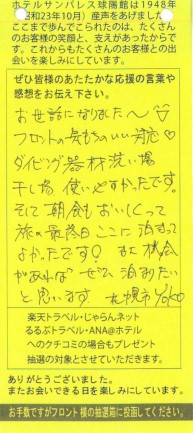 ホテルサンパレス球陽館は1948年
(昭和23年10月)産声をあげました。
ここまで歩んでこられたのは、たくさん
のお客様の笑顔と、支えがあったからで
す。これからもたくさんのお客様との出
会いを楽しみにしています。
ぜひ皆様のあたたかな応援の言葉や
感想をお伝え下さい。
お世話になりました〜♡
フロントの気もちいい対応♡
ダイビング器材洗い場
干し場 使いやすかったです。
そして朝食もおいしくって
旅の最終日ここに泊まって
よかったです!また機会
があれば ぜひ、泊まりたい
と思います。札幌市 YOKO
楽天トラベル・じゃらんネット
るるぶトラベル・ANA@ホテル
へのクチコミの場合もプレゼント
抽選の対象とさせていただきます。
ありがとうございました。
またお会いできる日を楽しみにしています。
お手数ですがフロント横の抽選箱に投函してください。